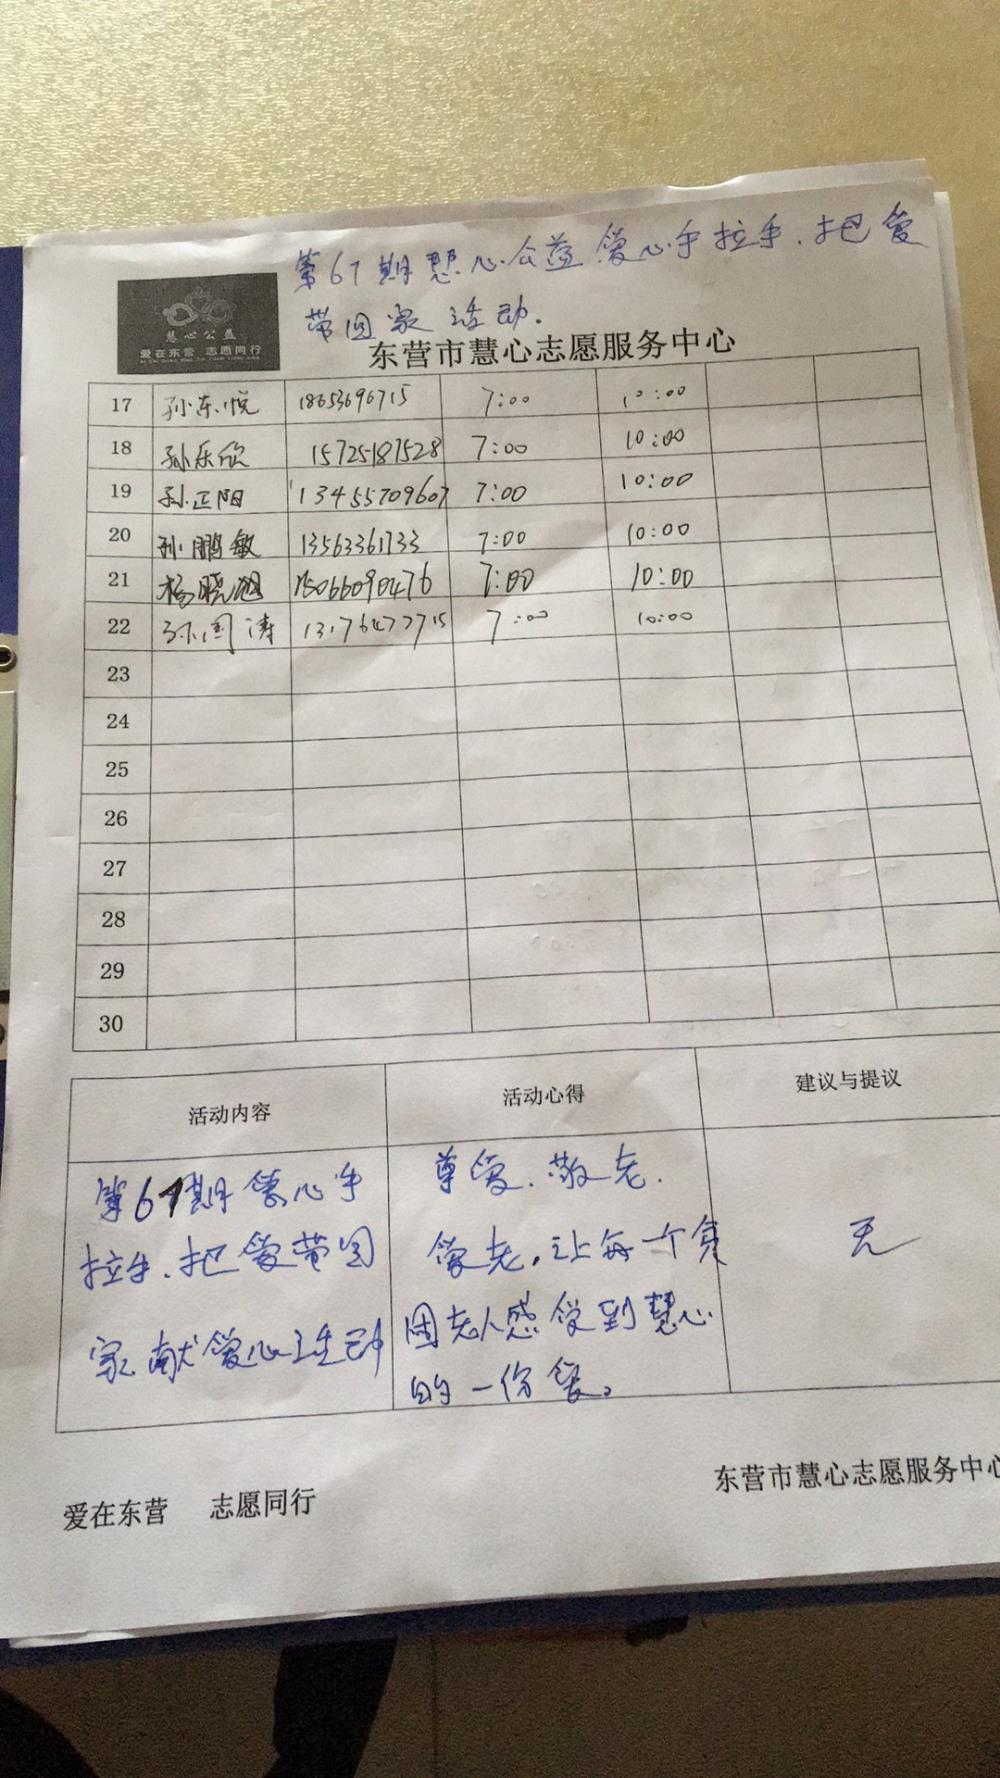 第67期慧心公益爱心手拉手.把爱
带回家活动.
慈心公益
爱在东营 志愿同行
东营市慧心志愿服务中心
17 孙东悦 18653696715 7:00 10:00
18 孙乐欣 15725187528 7:00 10:00
19 孙正阳 13455709607 7:00 10:00
20 孙鹏敏 13563361733 7:00 10:00
21 杨晓 15066090476 7:00 10:00
22 孙国涛 13176477715 7:00 10:00
23
24
25
26
27
28
29
30
活动内容 活动心得 建议与提议
第67期爱心手
拉手.把爱带回
家.献爱心活动
尊爱.敬老.
爱老,让每一个贫
困老人感受到慧心
的一份爱。
无
爱在东营 志愿同行
东营市慧心志愿服务中心